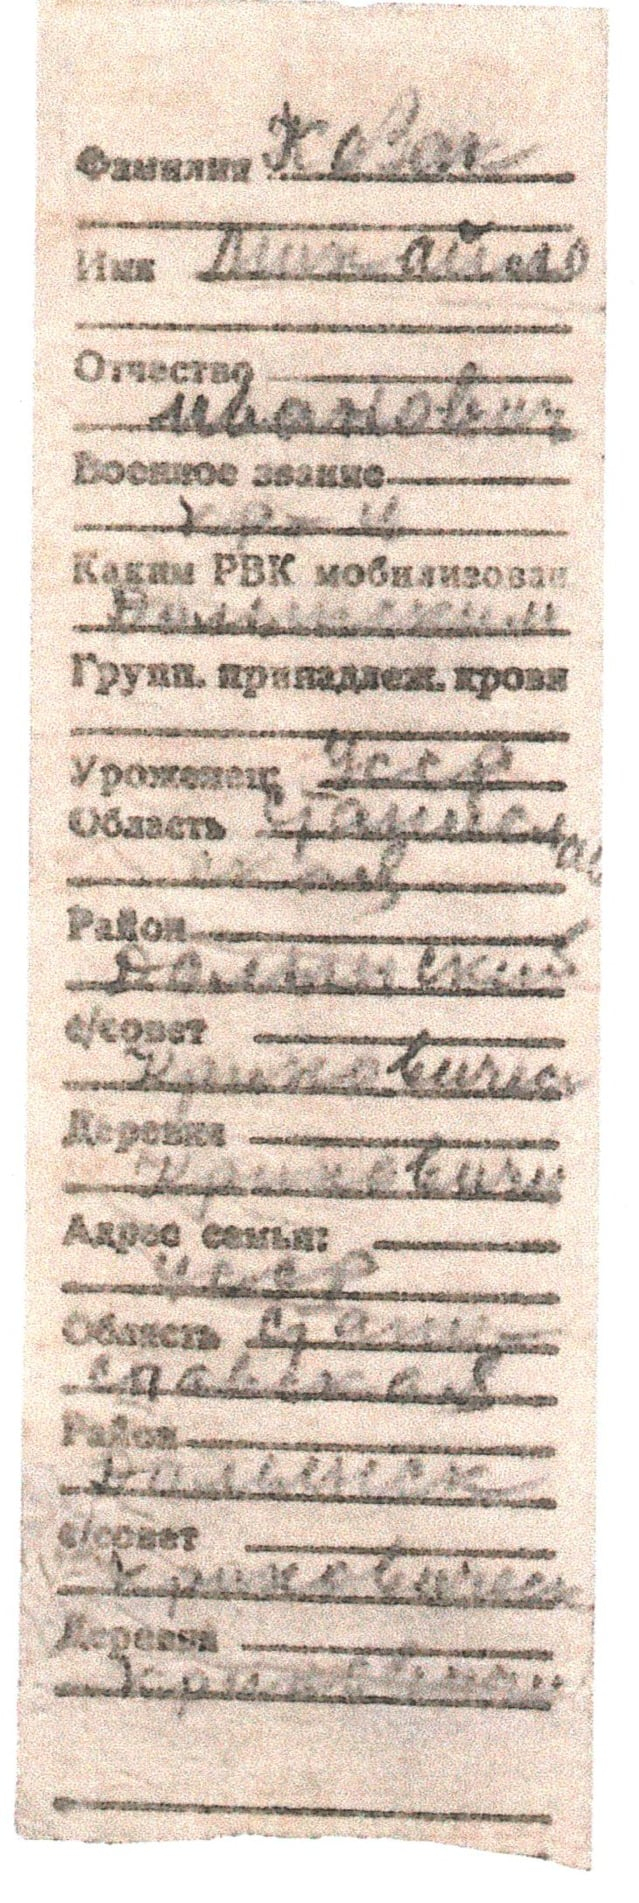 Фамилия Ковак
Имя Михайело
Отчество
иванович
Военное звание
кр-ц
Каким РВК мобилизован
Долынским
Групп. принадлеж. крови
Уроженец: УССР
Область Станисл
ав
ская
Район
Долынский
с/совет
Криховическ
Деревня
Криховичи
Адрес семьи:
УССР
Область Стани-
славская
Район
Долынск
с/совет
Криховическ
Деревня
Криховичи